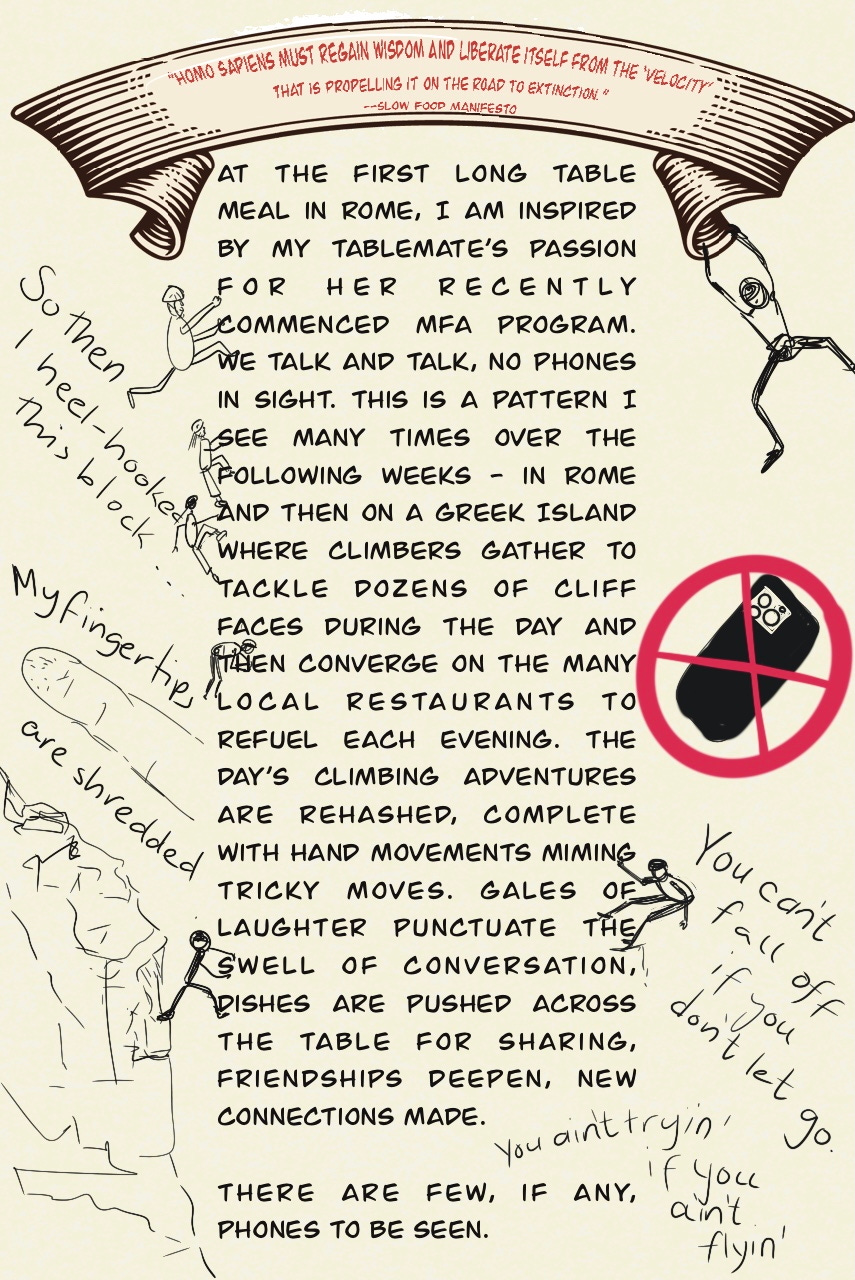 "HOMO SAPIENS MUST REGAIN WISDOM AND LIBERATE ITSELF FROM THE 'VELOCITY'
THAT IS PROPELLING IT ON THE ROAD TO EXTINCTION."
--SLOW FOOD MANIFESTO
AT THE FIRST LONG TABLE
MEAL IN ROME, I AM INSPIRED
BY MY TABLEMATE'S PASSION
FOR HER RECENTLY
COMMENCED MFA PROGRAM.
WE TALK AND TALK, NO PHONES
IN SIGHT. THIS IS A PATTERN I
SEE MANY TIMES OVER THE
FOLLOWING WEEKS - IN ROME
AND THEN ON A GREEK ISLAND
WHERE CLIMBERS GATHER TO
TACKLE DOZENS OF CLIFF
FACES DURING THE DAY AND
THEN CONVERGE ON THE MANY
LOCAL RESTAURANTS TO
REFUEL EACH EVENING. THE
DAY'S CLIMBING ADVENTURES
ARE REHASHED, COMPLETE
WITH HAND MOVEMENTS MIMING
TRICKY MOVES. GALES OF
LAUGHTER PUNCTUATE THE
SWELL OF CONVERSATION,
DISHES ARE PUSHED ACROSS
THE TABLE FOR SHARING,
FRIENDSHIPS DEEPEN, NEW
CONNECTIONS MADE.
THERE ARE FEW, IF ANY,
PHONES TO BE SEEN.
So then
I heel-hooked
this block...
My fingertips
are shredded
You can't
fall off
if you
don't let
go.
You ain't tryin'
if you
ain't
flyin'